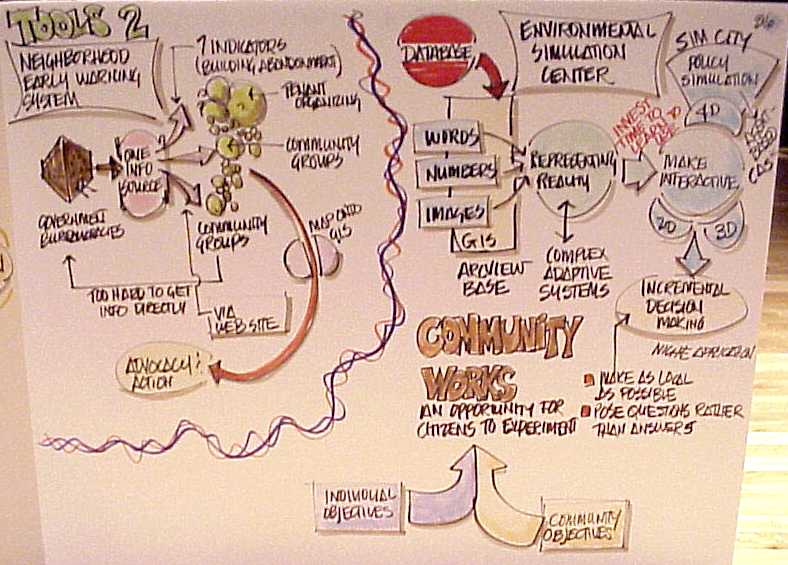 TOOLS 2
NEIGHBORHOOD
EARLY WARNING
SYSTEM
7 INDICATORS
(BUILDING ABANDONMENT)
TENANT
ORGANIZING
COMMUNITY
GROUPS
ONE
INFO
SOURCE
GOVERNMENT
BUREAUCRACIES
COMMUNITY
GROUPS
MAP ONTO
GIS
TOO HARD TO GET
INFO DIRECTLY
VIA
WEBSITE
ADVOCACY &
ACTION
DATABASE
ENVIRONMENTAL
SIMULATION
CENTER
SIM CITY
POLICY
SIMULATION
4D
INVEST
TIME TO
LEARN TO
USE
WORDS
NUMBERS
IMAGES
GIS
ARCVIEW
BASE
REPRESENTING
REALITY
COMPLEX
ADAPTIVE
SYSTEMS
MAKE
INTERACTIVE
BASED
CAS
2D
3D
INCREMENTAL
DECISION
MAKING
COMMUNITY
WORKS
AN OPPORTUNITY FOR
CITIZENS TO EXPERIMENT
MAKE AS LOCAL
AS POSSIBLE
POSE QUESTIONS RATHER
THAN ANSWERS
INDIVIDUAL
OBJECTIVES
COMMUNITY
OBJECTIVES